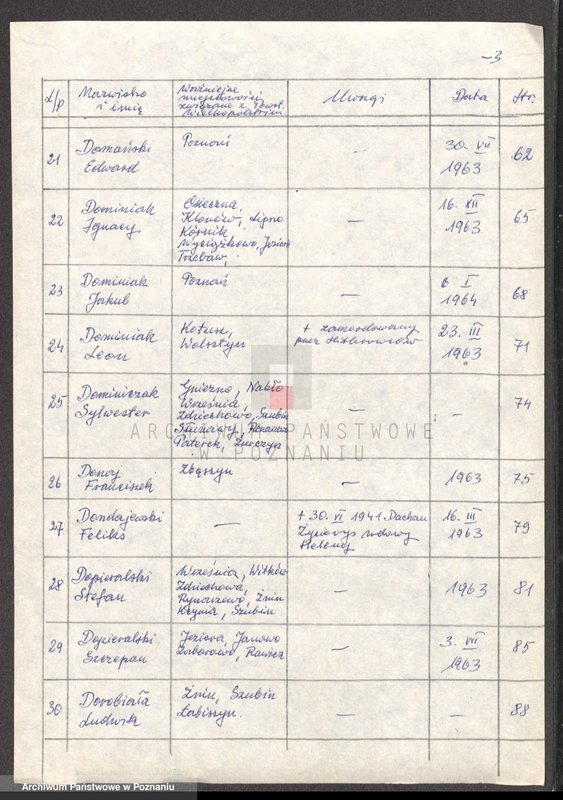 - 3
L/p
Nazwisko
i imię
Ważniejsze
miejscowości
związane z Powst.
Wielkopolskim
Uwagi
Data
Str.
21
Domański
Edward
Poznań
—
30. VII
1963
62
22
Dominiak
Ignacy
Osieczna,
Klonów, Lipno
Kórnik
Wyciążkowo,
Trzebaw,
—
16. XII
1963
65
23
Dominiak
Jakub
Poznań
—
6. I
1964
68
24
Dominiak
Leon
Kotusz,
Wolsztyn
+ zamordowany
przez Hitlerowców
23. III
1963
71
25
Dominiczak
Sylwester
Gniezno, Nakło
Września,
Zdziechowo, Szubin
Paterek, Żurczyn
—
—
74
26
Franciszek
Zbąszyn
—
1963
75
27
Dondajewski
Feliks
—
+ 30. VI 1941 Dachau
Życiorys wdowy
Heleny
16. III
1963
79
28
Dopieralski
Stefan
Września, Witków
Zdziechowa,
Rynarzewo, Żnin
Kcynia, Szubin
—
1963
81
29
Dopieralski
Szczepan
Jeziora, Janowo
Zaborowo, Rawicz
—
3. VII
1963
85
30
Dorobiała
Ludwik
Żnin, Szubin
Łabiszyn.
—
—
88
ARCHIWUM PAŃSTWOWE
W POZNANIU
Archiwum Państwowe w Poznaniu